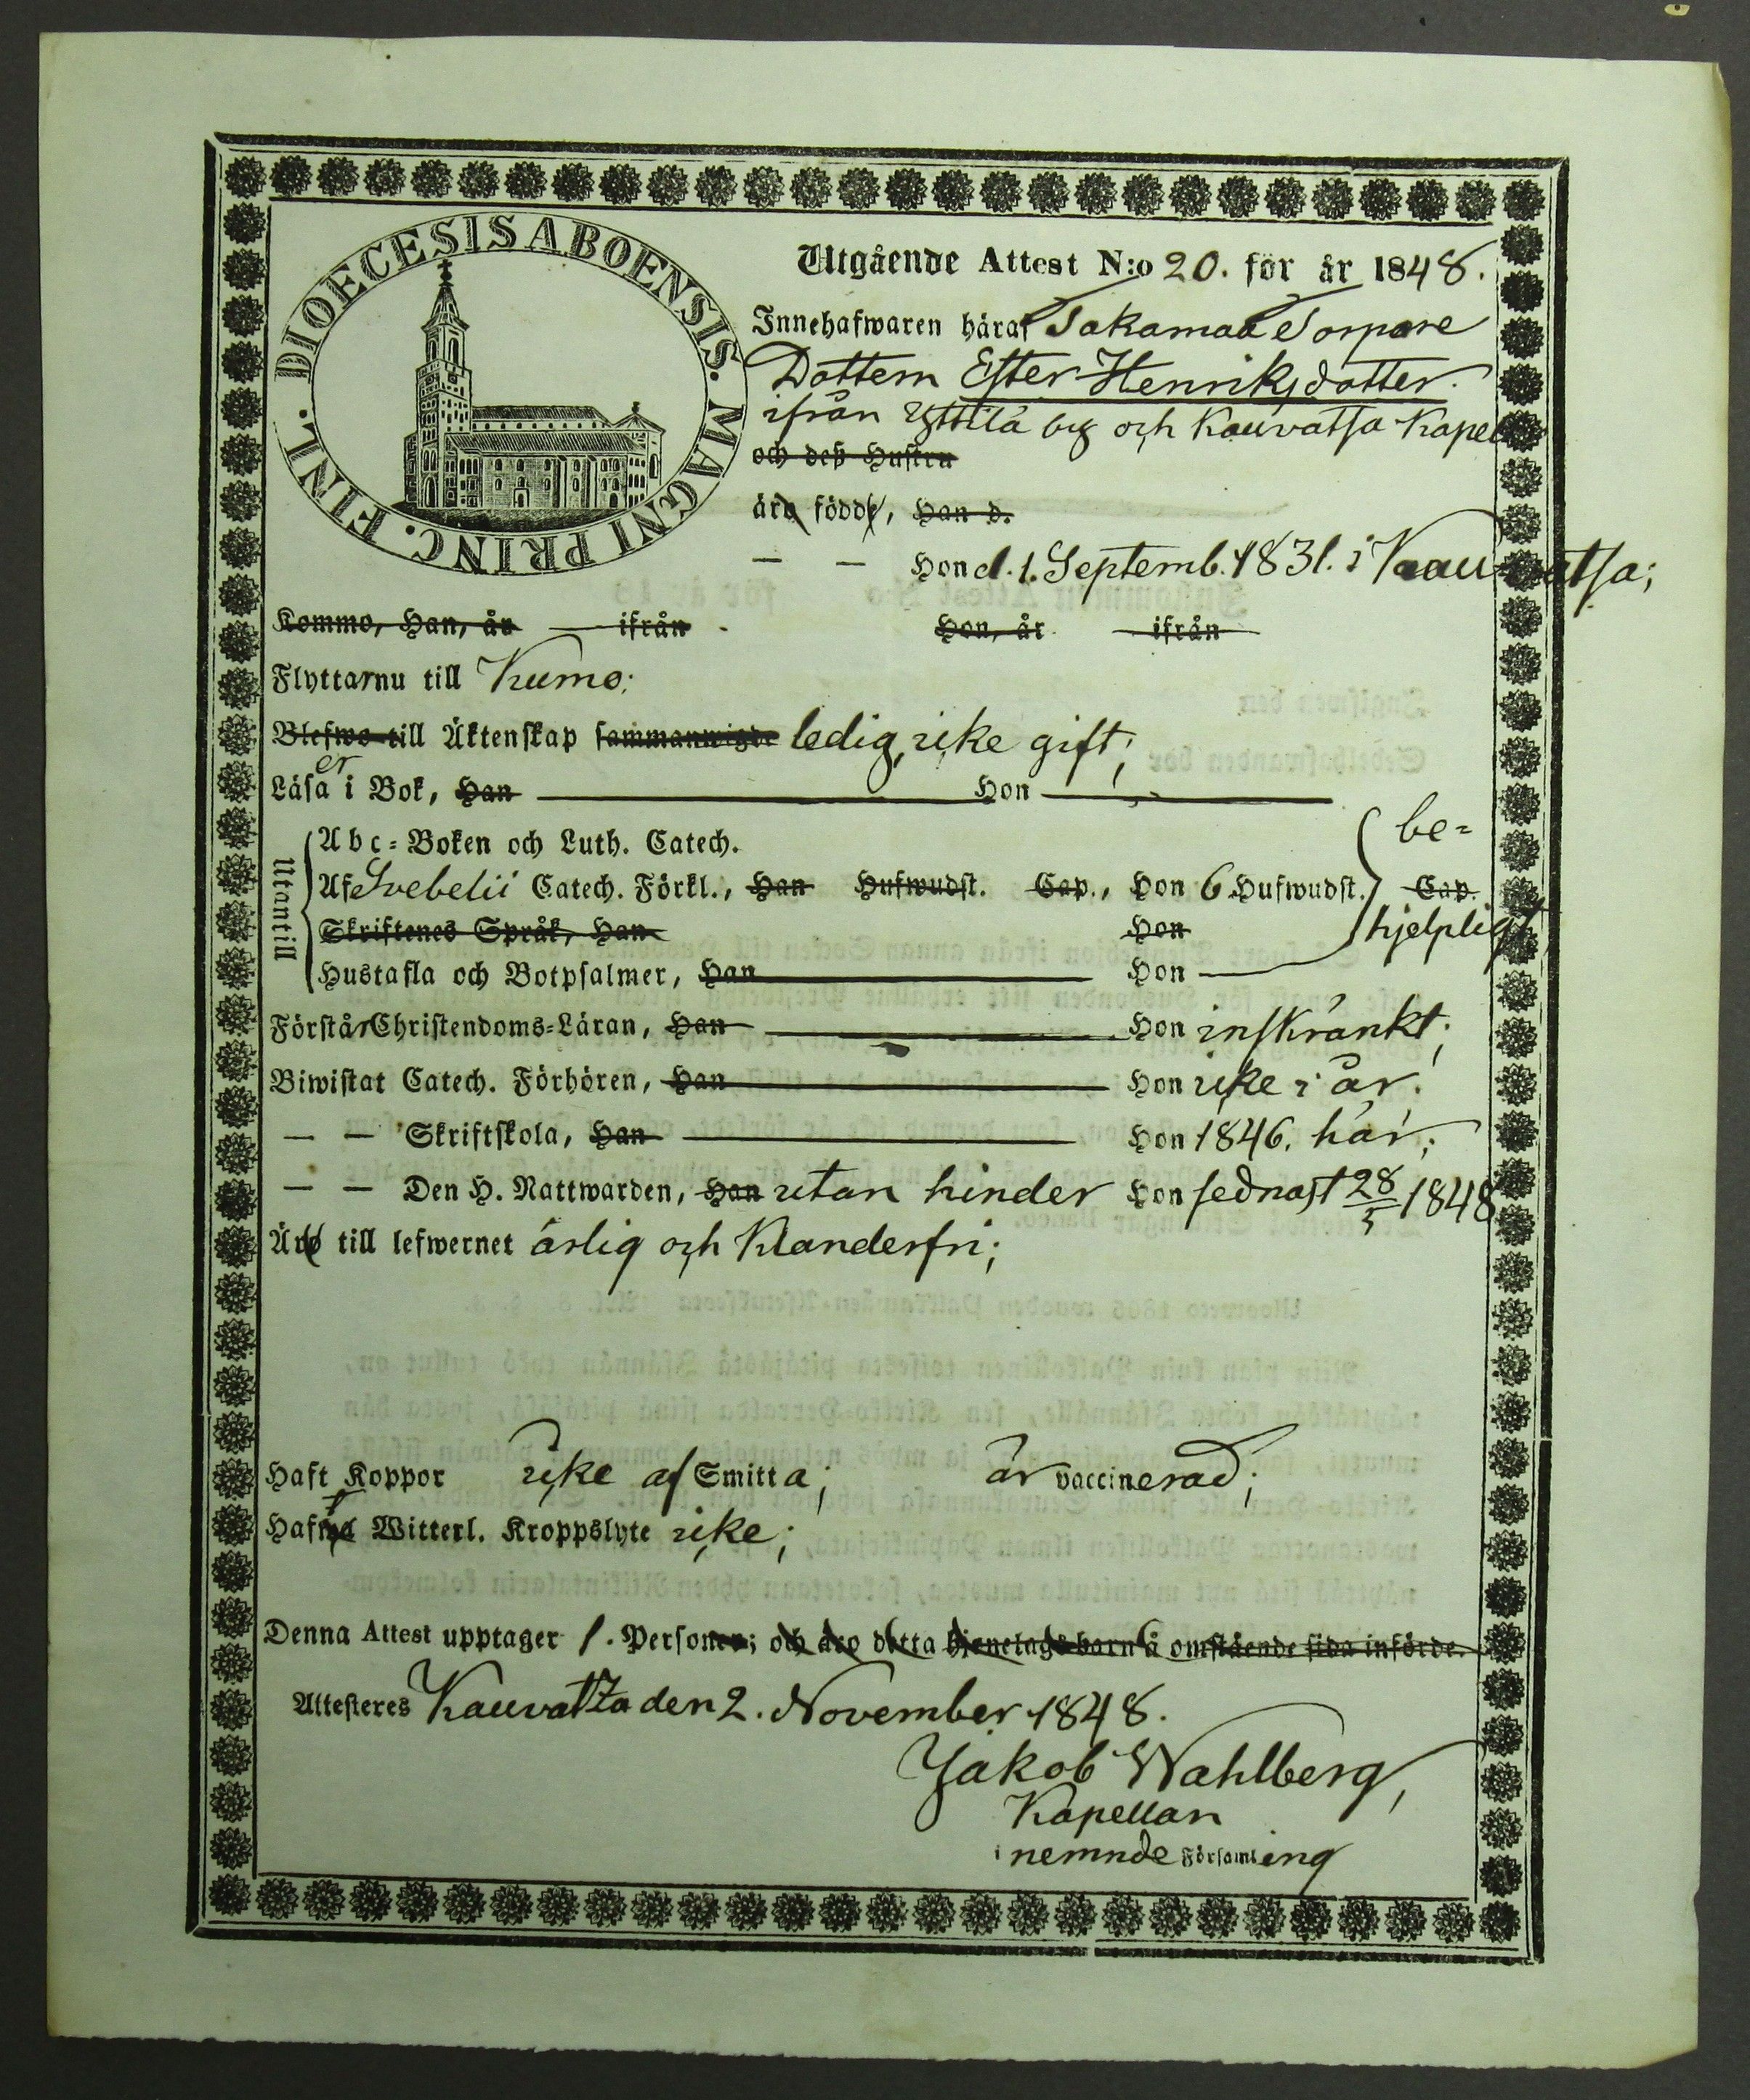 DIOECESIS ABOENSIS. MAGNI PRINC. FINL.
Utgående Attest N:o 20. för år 1848.
Innehafwaren häraf Takamaa Torpare
Dottern Ester Henriksdotter.
ifrån Yttilä by och Kauvatsa Kapell
och deß Hustru
äro födde, Han d.
— — Hon d. 1. Septemb. 1831. i Kauvatsa;
Kommo, Han, år — ifrån Hon, år — ifrån
Flyttar nu till Kumo;
Blefwo till Äktenskap sammanwigde ledig, icke gift;
Läsaer i Bok, Han — Hon —
Utantill
Abc-Boken och Luth. Catech. be-
Af Svebelii Catech. Förkl., Han Hufwudst. Cap., Hon 6 Hufwudst. Cap.
Skriftenes Språk, Han Hon hjelpligt,
Hustafla och Botpsalmer, Han — Hon —
Förstår Christendoms-Läran, Han — Hon inskränkt;
Biwistat Catech. Förhören, Han — Hon icke i år.
— — Skriftskola, Han — Hon 1846. här;
— — Den H. Nattwarden, Han utan hinder Hon sednast 28/5 1848
Äro till lefwernet ärlig och klanderfri;
Haft Koppor icke af Smitta; är vaccinerad;
Haft Witterl. Kroppslyte icke;
Denna Attest upptager 1. Personer; och äro detta hjonelags barn å omstående sida införde.
Attesteres Kauvatza den 2. November 1848.
Jakob Wahlberg,
Kapellan
i nemnde Församling